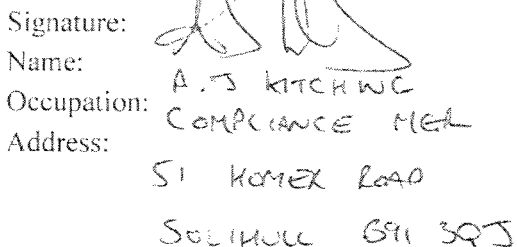 Signature:
Name: A.J KITCHING
Occupation: COMPLIANCE MGR
Address:
51 HOMER ROAD
SOLIHULL B91 3QJ